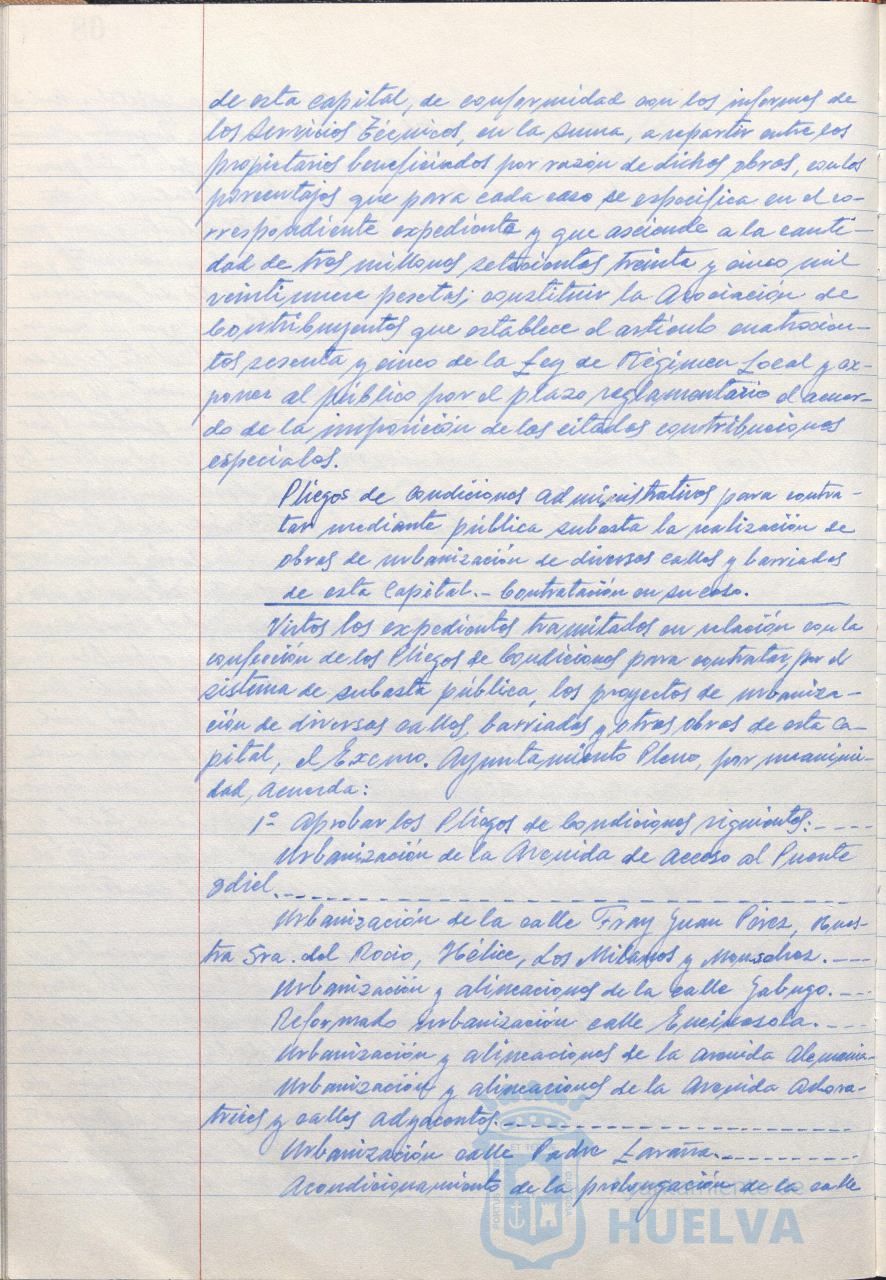 de esta capital, de conformidad con los informes de
los Servicios Técnicos, en la suma, a repartir entre los
propietarios beneficiados por razón de dichas obras, con los
porcentajes que para cada caso se especifica en el co-
rrespondiente expediente y que asciende a la canti-
dad de tres millones setecientas treinta y cinco mil
veintinueve pesetas; constituir la Asociación de
Contribuyentes que establece el artículo cuatrocien-
tos sesenta y cinco de la Ley de Régimen Local y ex-
poner al público por el plazo reglamentario el acuer-
do de la imposición de las citadas contribuciones
especiales.
Pliegos de Condiciones administrativas para contra-
tar mediante pública subasta la realización de
obras de urbanización de diversas calles y barriadas
de esta Capital.- Contratación en su caso.
Vistos los expedientes tramitados en relación con la
confección de los Pliegos de Condiciones para contratar, por el
sistema de subasta pública, los proyectos de urbaniza-
ción de diversas calles, barriadas y otras obras de esta Ca-
pital, el Excmo. Ayuntamiento Pleno, por unanimi-
dad, acuerda:
1º Aprobar los Pliegos de Condiciones siguientes:----
Urbanización de la Avenida de Acceso al Puente
Odiel.
Urbanización de la calle Fray Juan Pérez, Nues-
tra Sra. del Rocio, Hélice, Los Milanos y Mensulas.---
Urbanización y alineaciones de la calle Jabugo.---
Reformado urbanización calle Encinasola.---
Urbanización y alineaciones de la avenida Alemania-
Urbanización y alineaciones de la Avenida Adora-
trices y calles adyacentes.
Urbanización calle Padre Laraña.
Acondicionamiento de la prolongación de la calle
Ayuntamiento de
HUELVA